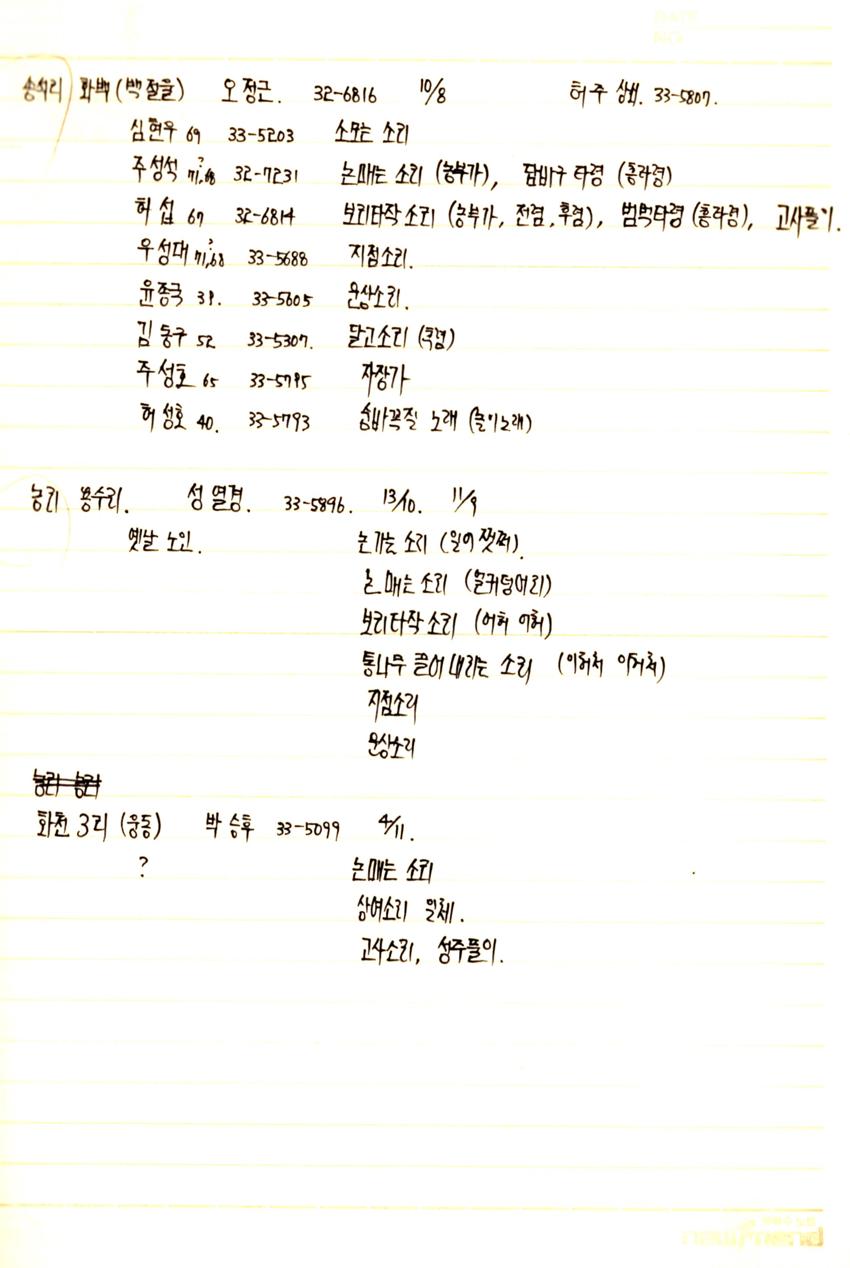 송석리 화백(백절을) 오정근. 32-6816 10/8 허주 상회. 33-5807.
심현우 69 33-5203 소모는 소리
주성석 71,68? 32-7231 논매는 소리 (농부가), 담바구 타령 (홍타령)
허섭 67 32-6814 보리타작 소리 (농부가, 전렴, 후렴), 범벅타령 (홍타령), 고사풀이.
우성대 71,68? 33-5688 지점소리.
윤종국 39. 33-5605 운상소리.
김동구 52 33-5307. 달고소리
주성호 65 33-5795 자장가
허성호 40. 33-5793 숨바꼭질 노래 (놀이노래)
농리 용수리. 성열경. 33-5896. 13/10. 11/9
옛날 노인. 논가는 소리
논매는 소리 (울커덩어리)
보리타작 소리 (어허 어허)
통나무 끌어 내리는 소리
지점소리
운상소리
화천 3리 (웅동) 박승후 33-5099 4/11.
? 논매는 소리
상여소리 일체.
고사소리, 성주풀이.